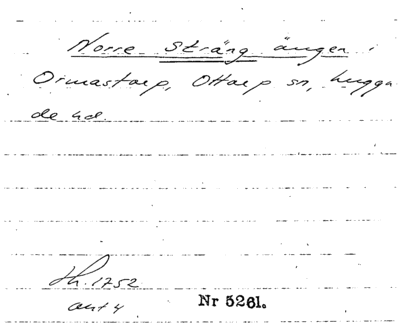 Norre Sträng ängen i
Ormastorp, Ottarp sn, Luggu
de hd.
Lh. 1752
akt 4
Nr 5261.